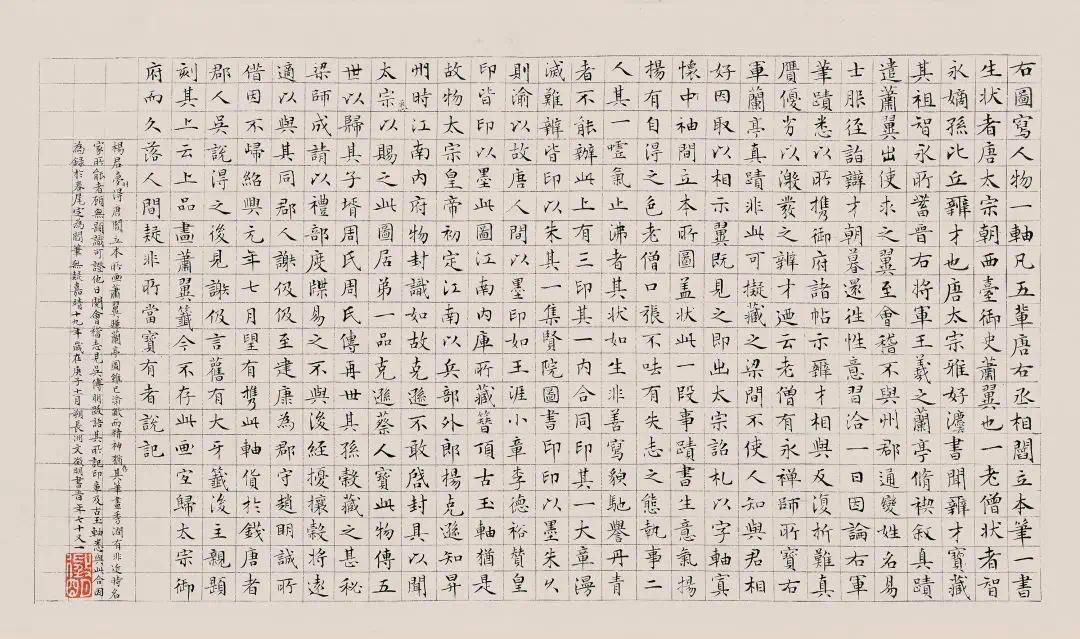 右圖寫人物一軸凡五輩唐右丞相閻立本筆一書
生状者唐太宗朝西臺御史蕭翼也一老僧状者智
永嫡孫比丘辨才也唐太宗雅好灋書聞辨才寶藏
其祖智永所蓄晉右將軍王羲之蘭亭脩禊叙真蹟
遣蕭翼出使求之翼至會稽不與州郡通變姓名易
士服徑詣辯才朝暮還徃性意習洽一日因論右軍
筆蹟悉以所攜御府諸帖示辯才相與反復折難真
贋優劣以激發之辨才迺云老僧有永禅師所寶右
軍蘭亭真蹟非此可擬藏之梁間不使人知與君相
好因取以相示翼既見之即出太宗詔札以字軸寘
懷中袖間立本所圖盖状此一段事蹟書生意氣揚
揚有自得之色老僧口張不呿有失志之態執事二
人其一嘘氣止沸者其状如生非善寫貌馳譽丹青
者不能辦此上有三印其一内合同印其一大章漫
滅難辨皆印以朱其一集賢院圖書印印以墨朱久
則渝以故唐人間以墨印如王涯小章李德裕贊皇
印皆印以墨此圖江南内庫所藏簪頂古玉軸猶是
故物太宗皇帝初定江南以兵部外郎揚克遜知昇
州時江南内府物封識如故克遜不敢啓封具以聞
太宗悉以賜之此圖居第一品克遜蔡人寳此物傳五
世以歸其子壻周氏周氏傳再世其孫榖藏之甚秘
梁師成請以禮部度牒易之不與後經擾攘榖將遠
適以與其同郡人謝伋伋至建康為郡守趙明誠所
借因不歸紹興元年七月望有攜此軸貨於錢唐者
郡人吳説得之後見謝伋言舊有大牙籤後主親題
刻其上云上品畫蕭翼籤今不存此画宜歸太宗御
府而久落人間疑非所當寳有者説記
楊君夢羽得唐閻立本所画蕭翼賺蘭亭圖雖已渝敝而精神猶在其筆畫秀潤有非近時名
家所能者顧無題識可證他日閱會稽志見吳傅朋跋語其所記印章及古玉軸悉與此合因
為録於卷尾定為閻筆無疑嘉靖十九年歲在庚子十月朔長洲文徵明書旹年七十又一